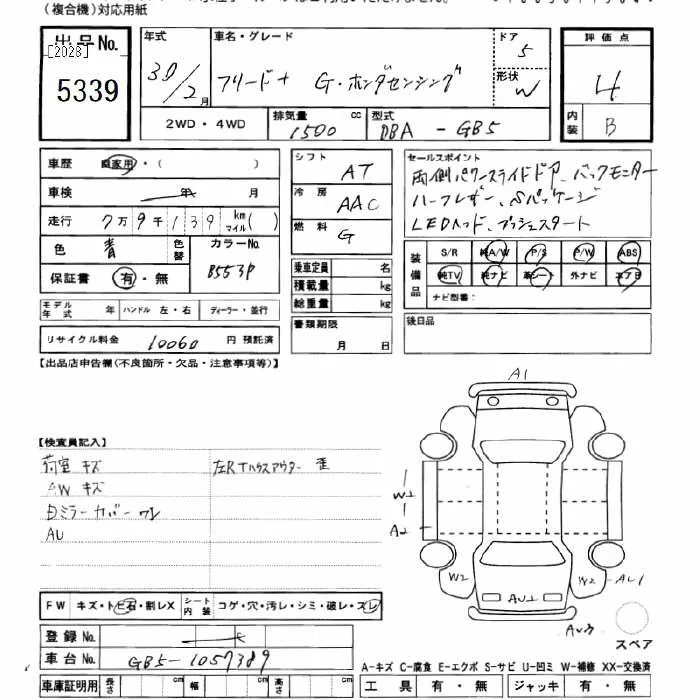 (複合機)対応用紙
出品No.
[2028]
5339
年式 30/2月
車名・グレード フリード+ G・ホンダセンシング
ドア 5
形状 W
評価点 4
内装 B
2WD・4WD
排気量 1500 cc
型式 DBA-GB5
車歴 自家用・( )
車検 年 月
走行 7万9千139 km マイル( )
色 青 色替
カラーNo. B553P
保証書 有・無
モデル年式 年
ハンドル 左・右
ディーラー・並行
リサイクル料金 10060 円 預託済
シフト AT
冷房 AAC
燃料 G
乗車定員 名
積載量 kg
総重量 kg
書類期限
月 日
セールスポイント
両側パワースライドドア、バックモニター
ハーフレザー、Sパッケージ
LEDヘッド、プッシュスタート
装備品
S/R 純A/W P/S P/W ABS
純TV 純ナビ 革シート 外ナビ エアB
ナビ型番:
後日品
【出品店申告欄(不良箇所・欠品・注意事項等)】
【検査員記入】
荷室 キズ
左Rタハウスアウター 歪
AW キズ
Dミラーカバーワレ
AU
FW キズ・トビ石・割レX
シート内装 コゲ・穴・汚レ・シミ・破レ・スレ
登録No.
車台No. GB5-1057389
車庫証明用 長さ cm 幅 cm 高さ cm
A1
W2
A2
W2
W2
AU1
AU2
AU3
スペア
A-キズ C-腐食 E-エクボ S-サビ U-凹ミ W-補修 XX-交換済
工具 有・無 ジャッキ 有・無